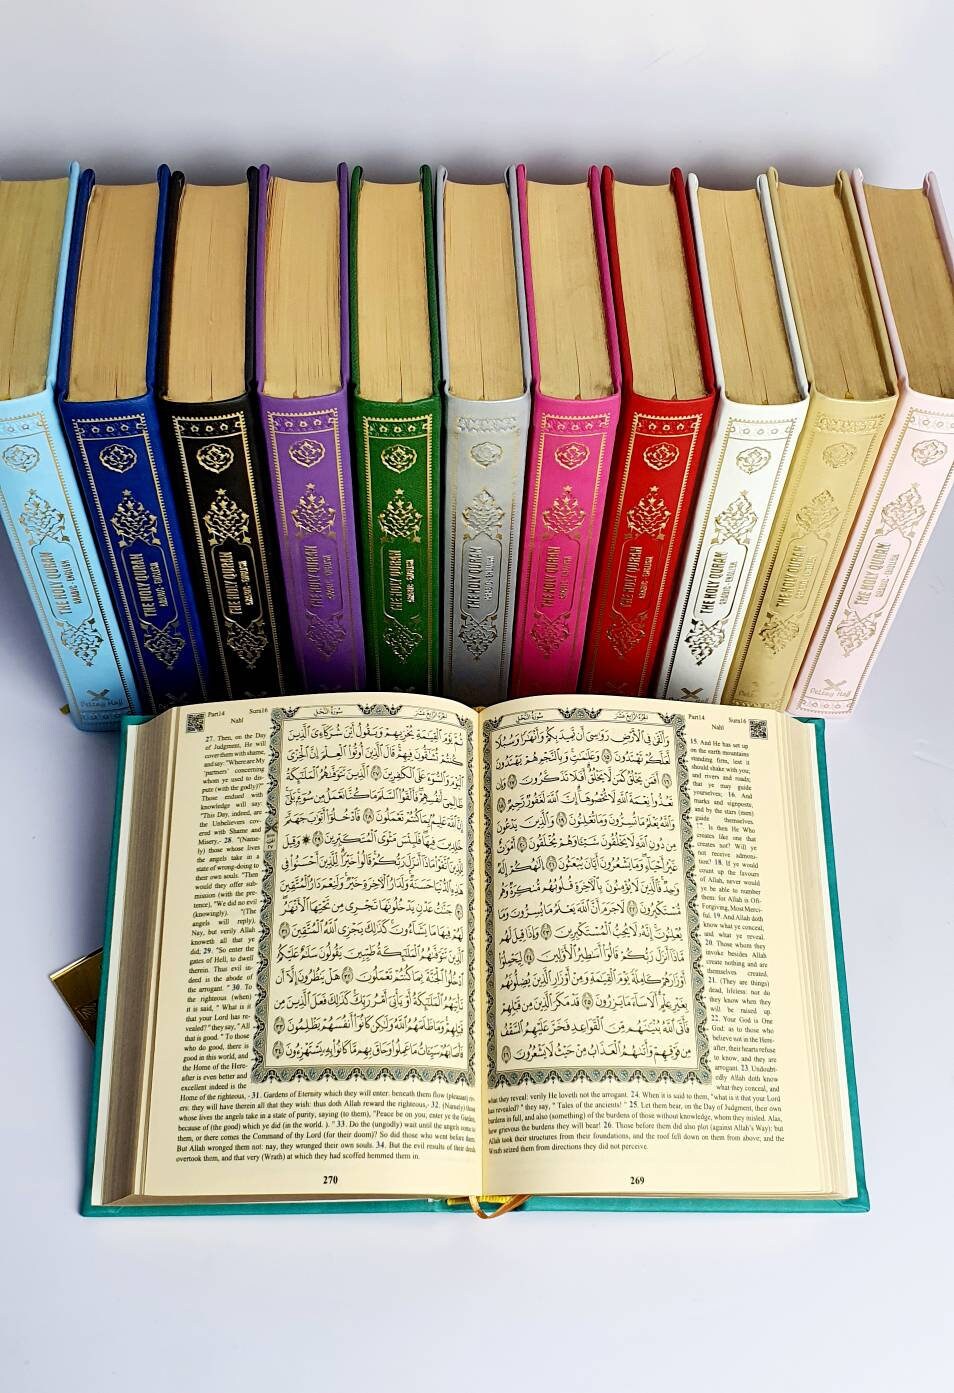 THE HOLY QURAN
ARABIC - ENGLISH
THE HOLY QURAN
ARABIC - ENGLISH
THE HOLY QURAN
ARABIC - ENGLISH
THE HOLY QURAN
ARABIC - ENGLISH
THE HOLY QURAN
ARABIC - ENGLISH
THE HOLY QURAN
ARABIC - ENGLISH
THE HOLY QURAN
ARABIC - ENGLISH
THE HOLY QURAN
ARABIC - ENGLISH
THE HOLY QURAN
ARABIC - ENGLISH
THE HOLY QURAN
ARABIC - ENGLISH
THE HOLY QURAN
ARABIC - ENGLISH
Part14 Sura16
Nahl
الجزء الرابع عشر سورة النحل
وَأَلْقَىٰ فِي الْأَرْضِ رَوَاسِيَ أَن تَمِيدَ بِكُمْ وَأَنْهَارًا وَسُبُلًا
لَّعَلَّكُمْ تَهْتَدُونَ ١٥ وَعَلَامَاتٍ وَبِالنَّجْمِ هُمْ يَهْتَدُونَ
١٦ أَفَمَن يَخْلُقُ كَمَن لَّا يَخْلُقُ أَفَلَا تَذَكَّرُونَ ١٧ وَإِن
تَعُدُّوا نِعْمَةَ اللَّهِ لَا تُحْصُوهَا إِنَّ اللَّهَ لَغَفُورٌ رَّحِيمٌ ١٨
وَاللَّهُ يَعْلَمُ مَا تُسِرُّونَ وَمَا تُعْلِنُونَ ١٩ وَالَّذِينَ يَدْعُونَ
مِن دُونِ اللَّهِ لَا يَخْلُقُونَ شَيْئًا وَهُمْ يُخْلَقُونَ ٢٠ أَمْوَاتٌ
غَيْرُ أَحْيَاءٍ وَمَا يَشْعُرُونَ أَيَّانَ يُبْعَثُونَ ٢١ إِلَٰهُكُمْ إِلَٰهٌ
وَاحِدٌ فَالَّذِينَ لَا يُؤْمِنُونَ بِالْآخِرَةِ قُلُوبُهُم مُّنكِرَةٌ وَهُم
مُّسْتَكْبِرُونَ ٢٢ لَا جَرَمَ أَنَّ اللَّهَ يَعْلَمُ مَا يُسِرُّونَ وَمَا
يُعْلِنُونَ إِنَّهُ لَا يُحِبُّ الْمُسْتَكْبِرِينَ ٢٣ وَإِذَا قِيلَ لَهُم
مَّاذَا أَنزَلَ رَبُّكُمْ قَالُوا أَسَاطِيرُ الْأَوَّلِينَ ٢٤ لِيَحْمِلُوا
أَوْزَارَهُمْ كَامِلَةً يَوْمَ الْقِيَامَةِ وَمِنْ أَوْزَارِ الَّذِينَ يُضِلُّونَهُم
بِغَيْرِ عِلْمٍ أَلَا سَاءَ مَا يَزِرُونَ ٢٥ قَدْ مَكَرَ الَّذِينَ مِن قَبْلِهِمْ
فَأَتَى اللَّهُ بُنْيَانَهُم مِّنَ الْقَوَاعِدِ فَخَرَّ عَلَيْهِمُ السَّقْفُ
مِن فَوْقِهِمْ وَأَتَاهُمُ الْعَذَابُ مِنْ حَيْثُ لَا يَشْعُرُونَ ٢٦
15. And He has set up
on the earth mountains
standing firm, lest it
should shake with you;
and rivers and roads;
that ye may guide
yourselves; 16. And
marks and signposts;
and by the stars (men)
guide themselves.
17. Is then He Who
creates like one that
creates not? Will ye
not receive admoni-
tion? 18. If ye would
count up the favours
of Allah, never would
ye be able to number
them: for Allah is Oft-
Forgiving, Most Merci-
ful. 19. And Allah doth
know what ye conceal,
and what ye reveal.
20. Those whom they
invoke besides Allah
create nothing and are
themselves created.
21. (They are things)
dead, lifeless: nor do
they know when they
will be raised up.
22. Your God is One
God: as to those who
believe not in the Here-
after, their hearts refuse
to know, and they are
arrogant. 23. Undoubt-
edly Allah doth know
what they conceal, and
what they reveal: verily He loveth not the arrogant. 24. When it is said to them, "what is it that your Lord
has revealed? " they say, " Tales of the ancients! " 25. Let them bear, on the Day of Judgment, their own
burdens in full, and also (something) of the burdens of those without knowledge, whom they misled. Alas,
how grievous the burdens they will bear! 26. Those before them did also plot (against Allah's Way): but
Allah took their structures from their foundations, and the roof fell down on them from above; and the
Wrath seized them from directions they did not perceive.
269
Part14 Sura16
Nahl
الجزء الرابع عشر سورة النحل
ثُمَّ يَوْمَ الْقِيَامَةِ يُخْزِيهِمْ وَيَقُولُ أَيْنَ شُرَكَائِيَ الَّذِينَ
كُنتُمْ تُشَاقُّونَ فِيهِمْ قَالَ الَّذِينَ أُوتُوا الْعِلْمَ إِنَّ الْخِزْيَ
الْيَوْمَ وَالسُّوءَ عَلَى الْكَافِرِينَ ٢٧ الَّذِينَ تَتَوَفَّاهُمُ الْمَلَائِكَةُ
ظَالِمِي أَنفُسِهِمْ فَأَلْقَوُا السَّلَمَ مَا كُنَّا نَعْمَلُ مِن سُوءٍ بَلَىٰ
إِنَّ اللَّهَ عَلِيمٌ بِمَا كُنتُمْ تَعْمَلُونَ ٢٨ فَادْخُلُوا أَبْوَابَ جَهَنَّمَ
خَالِدِينَ فِيهَا فَلَبِئْسَ مَثْوَى الْمُتَكَبِّرِينَ ٢٩ ۞ وَقِيلَ
لِلَّذِينَ اتَّقَوْا مَاذَا أَنزَلَ رَبُّكُمْ قَالُوا خَيْرًا لِّلَّذِينَ أَحْسَنُوا فِي
هَٰذِهِ الدُّنْيَا حَسَنَةٌ وَلَدَارُ الْآخِرَةِ خَيْرٌ وَلَنِعْمَ دَارُ الْمُتَّقِينَ
٣٠ جَنَّاتُ عَدْنٍ يَدْخُلُونَهَا تَجْرِي مِن تَحْتِهَا الْأَنْهَارُ
لَهُمْ فِيهَا مَا يَشَاءُونَ كَذَٰلِكَ يَجْزِي اللَّهُ الْمُتَّقِينَ ٣١
الَّذِينَ تَتَوَفَّاهُمُ الْمَلَائِكَةُ طَيِّبِينَ يَقُولُونَ سَلَامٌ عَلَيْكُمُ
ادْخُلُوا الْجَنَّةَ بِمَا كُنتُمْ تَعْمَلُونَ ٣٢ هَلْ يَنظُرُونَ إِلَّا أَن
تَأْتِيَهُمُ الْمَلَائِكَةُ أَوْ يَأْتِيَ أَمْرُ رَبِّكَ كَذَٰلِكَ فَعَلَ الَّذِينَ مِن
قَبْلِهِمْ وَمَا ظَلَمَهُمُ اللَّهُ وَلَٰكِن كَانُوا أَنفُسَهُمْ يَظْلِمُونَ ٣٣
فَأَصَابَهُمْ سَيِّئَاتُ مَا عَمِلُوا وَحَاقَ بِهِم مَّا كَانُوا بِهِ يَسْتَهْزِئُونَ ٣٤
27. Then, on the Day
of Judgment, He will
cover them with shame,
and say: "Where are My
'partners' concerning
whom ye used to dis-
pute (with the godly)?"
Those endued with
knowledge will say:
"This Day, indeed, are
the Unbelievers cov-
ered with Shame and
Misery,- 28. "(Name-
ly) those whose lives
the angels take in a
state of wrong-doing to
their own souls. "Then
would they offer sub-
mission (with the pre-
tence), "We did no evil
(knowingly). "(The
angels will reply),
Nay, but verily Allah
knoweth all that ye
did; 29. "So enter the
gates of Hell, to dwell
therein. Thus evil in-
deed is the abode of
the arrogant. " 30. To
the righteous (when)
it is said, " What is it
that your Lord has re-
vealed? " they say, "All
that is good. " To those
who do good, there is
good in this world, and
the Home of the Here-
after is even better and
excellent indeed is the
Home of the righteous, - 31. Gardens of Eternity which they will enter: beneath them flow (pleasant) riv-
ers: they will have therein all that they wish: thus doth Allah reward the righteous,- 32. (Namely) those
whose lives the angels take in a state of purity, saying (to them), "Peace be on you; enter ye the Garden,
because of (the good) which ye did (in the world. ). " 33. Do the (ungodly) wait until the angels come to
them, or there comes the Command of thy Lord (for their doom)? So did those who went before them.
But Allah wronged them not: nay, they wronged their own souls. 34. But the evil results of their deeds
overtook them, and that very (Wrath) at which they had scoffed hemmed them in.
270